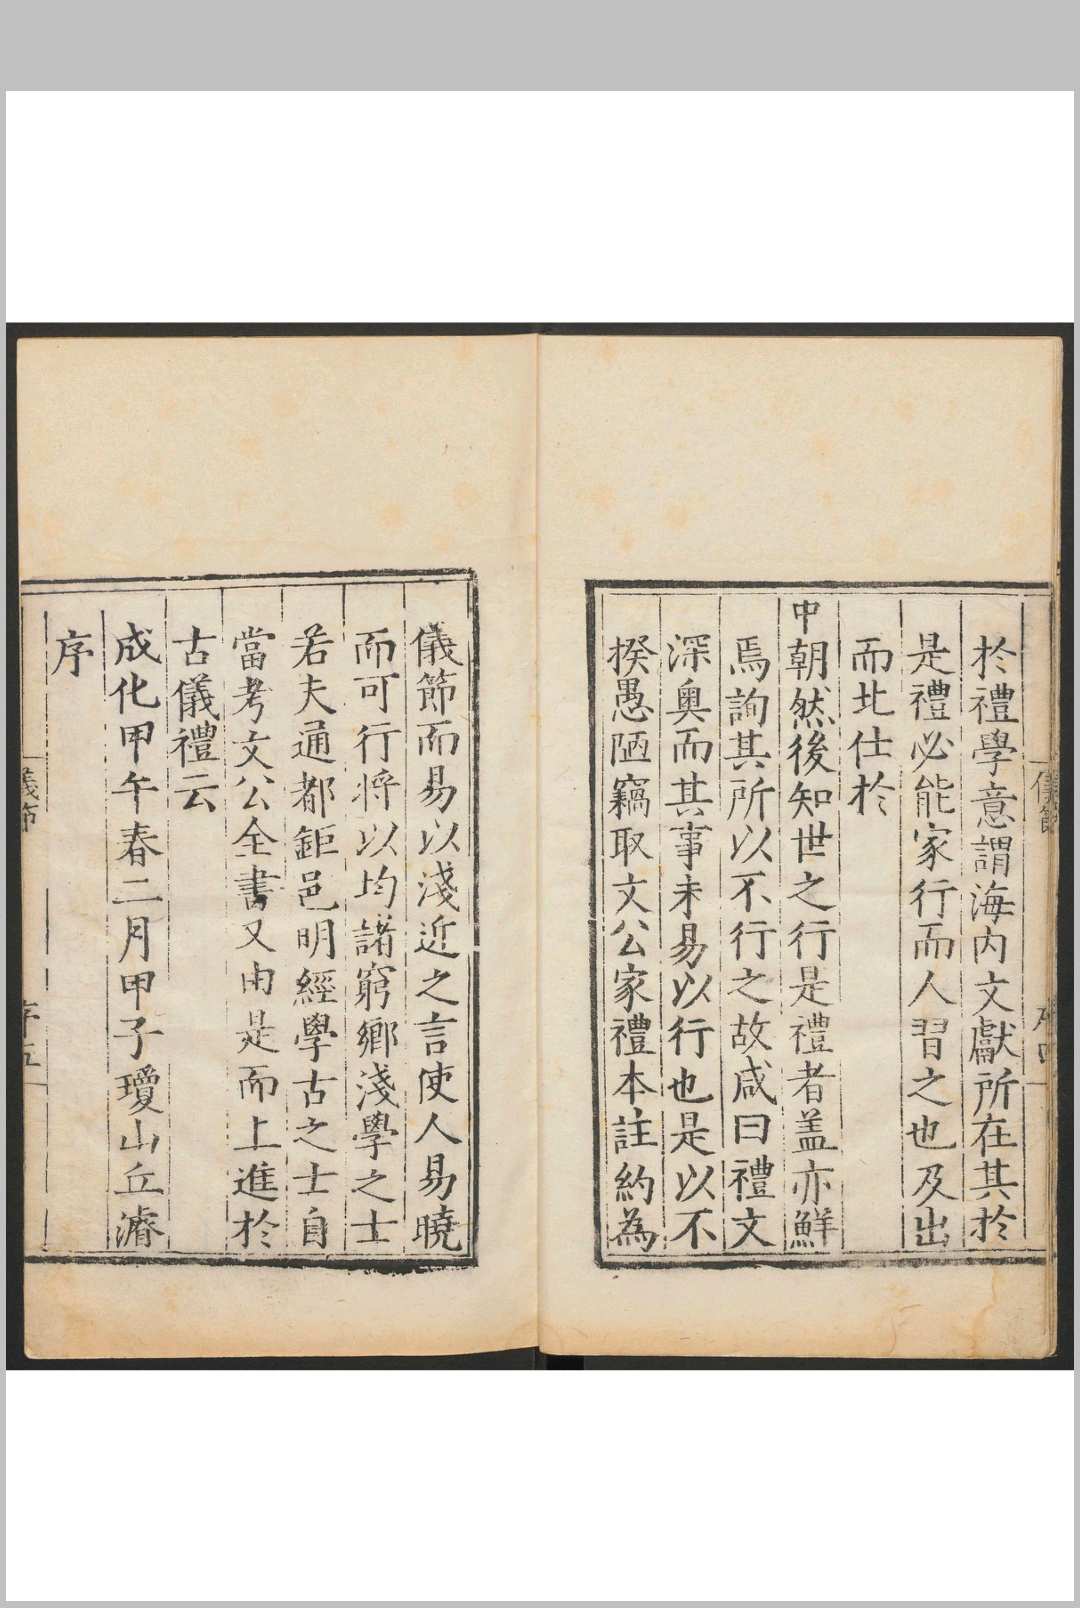 於禮學意謂海內文獻所在其於
是禮必能家行而人習之也及出
而北仕於
中朝然後知世之行是禮者盖亦鮮
焉詢其所以不行之故咸曰禮文
深奧而其事未易以行也是以不
揆愚陋竊取文公家禮本註約為
儀節而易以淺近之言使人易曉
而可行将以均諸窮鄉淺學之士
若夫通都鉅邑明經學古之士自
當考文公全書又由是而上進於
古儀禮云
成化甲午春二月甲子瓊山丘濬
序
儀節
序五